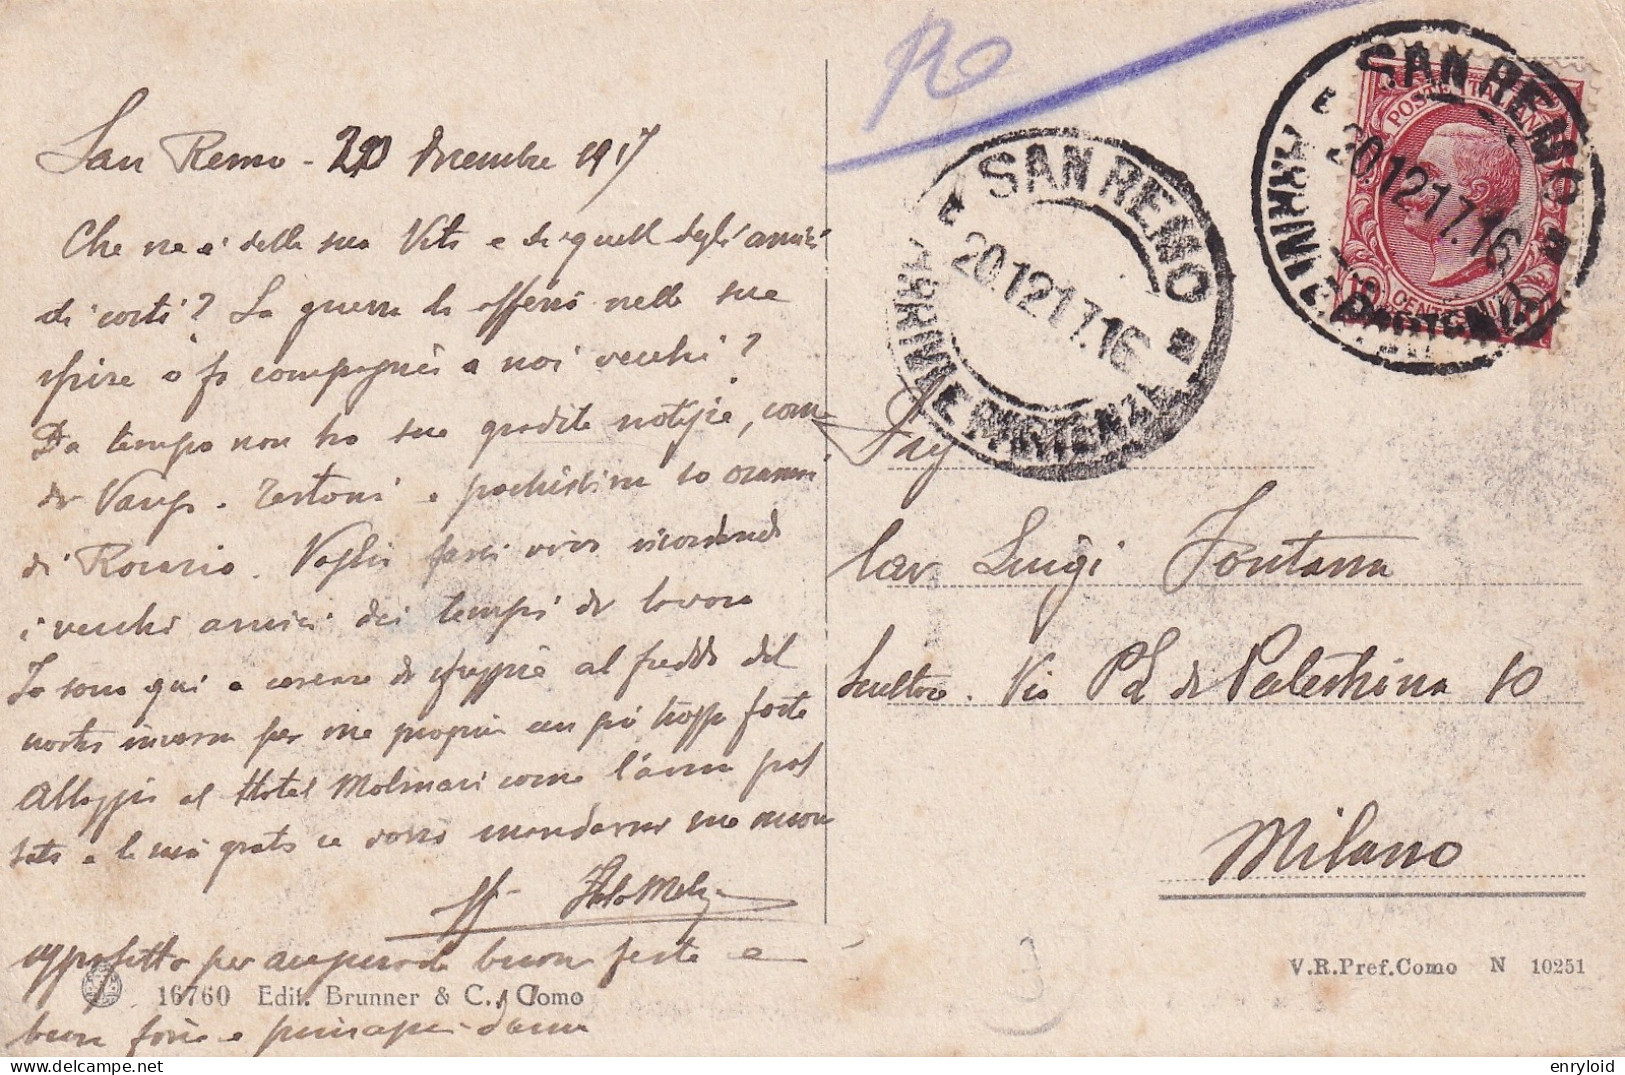 San Remo - 20 Dicembre 1917
Che ne è della sua Vita e di quella degli amici
di costì? La guerra le offerse nelle sue
spire o fa compagnia a noi vecchi?
Da tempo non ho sue gradite notizie, come
di Testoni e pochissime so oramai
di Rosario. Voglia farsi vivo ricordando
i vecchi amici dei tempi di lavoro
Io sono qui a cercare di sfuggire al freddo del
nostro inverno per me proprio un po' troppo forte
Alloggio al Hotel Molinari come l'anno pas
sato e le sarò grato se vorrà mandarmi sue nuove
approfitto per augurarle buone feste e
buon fine e principio danno
PO
SAN REMO
ARRIVI E PARTENZE
20.12.17.16
SAN REMO
ARRIVI E PARTENZE
20.12.17.16
POSTE ITALIANE
10 CENTESIMI 10
Cav Luigi Fontana
Scultore. Via P. L. di Palestrina 10
Milano
16760 Edit. Brunner & C., Como
V.R.Pref.Como N 10251
enryloid
delcampe.net